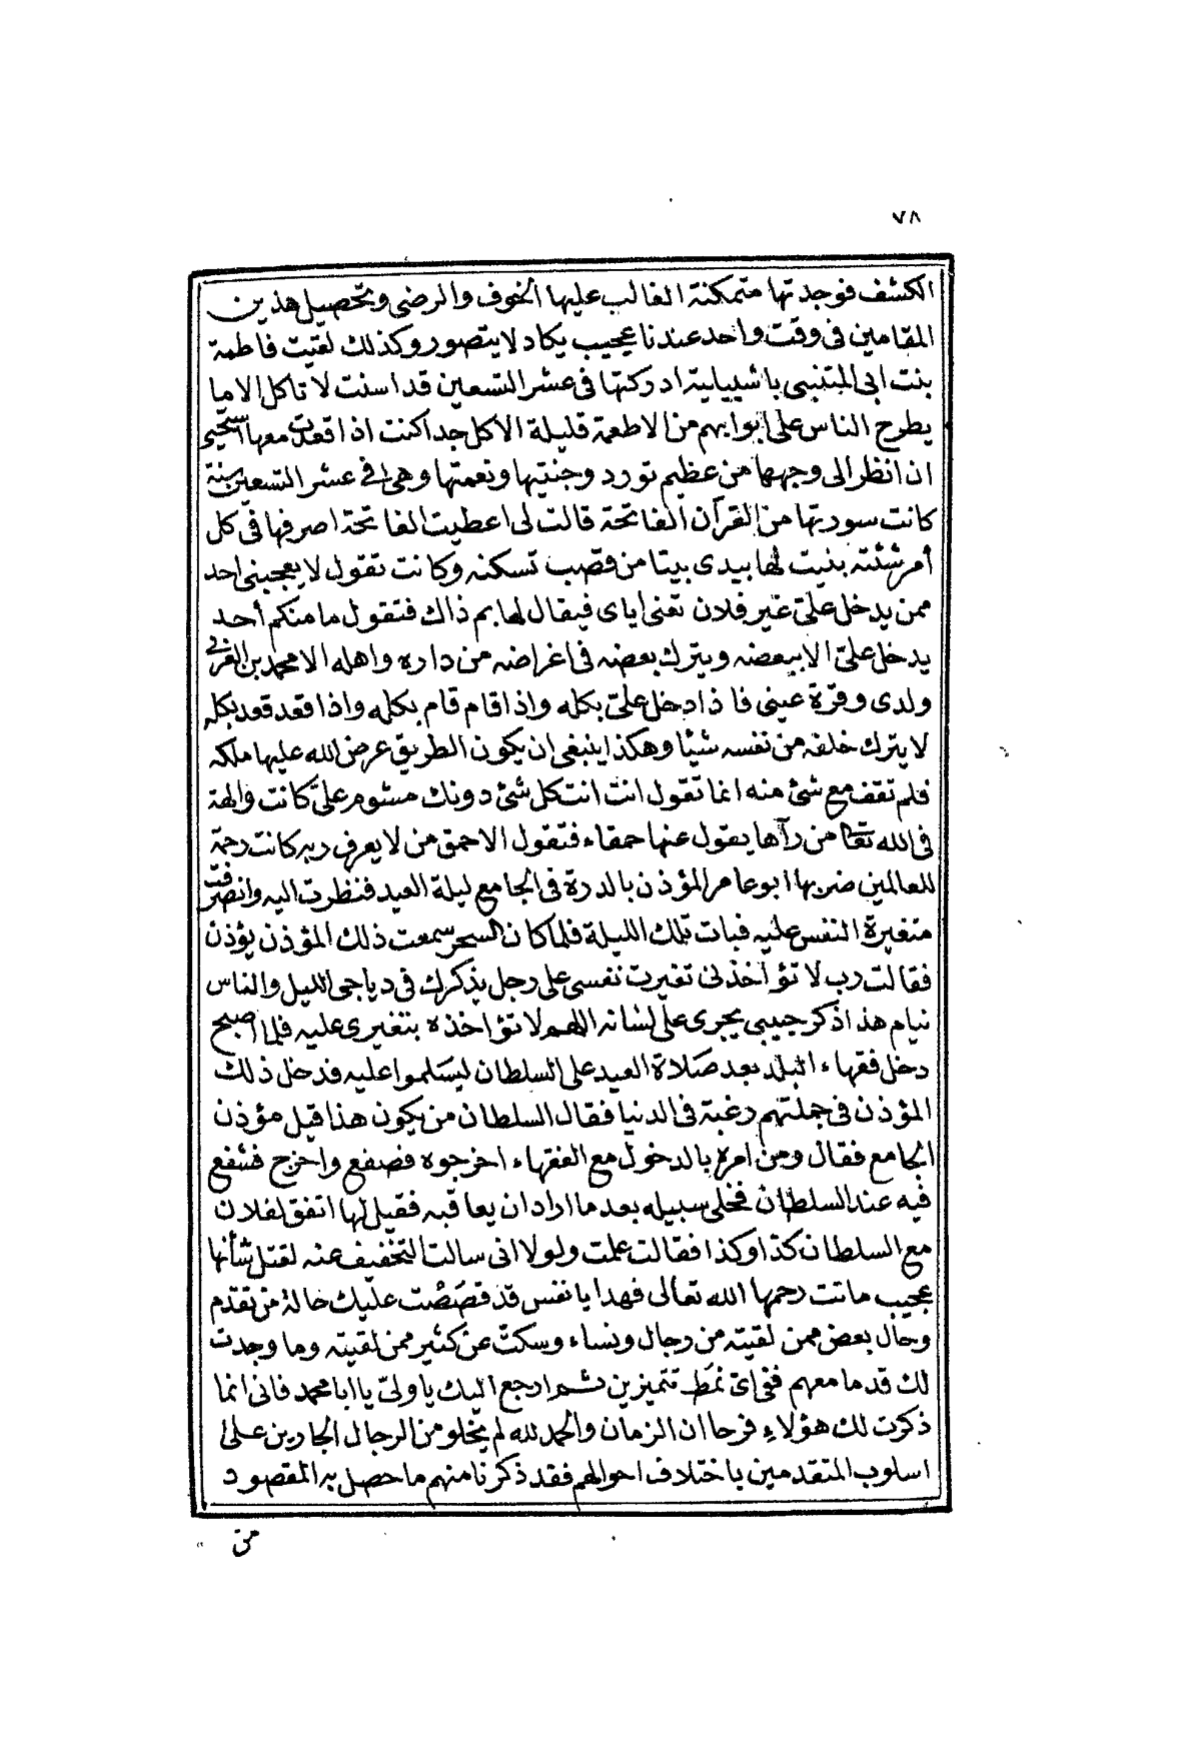 ٧٨
الكشف فوجدتها متمكنة الغالب عليها الخوف والرضى وتحصيل هذين
المقامين فى وقت واحد عندنا عجيب يكاد لا يتصور وكذلك لقيت فاطمة
بنت ابى المتنبى باشبيلية ادركتها فى عشر التسعين قد اسنت لا تاكل الا ما
يطرح الناس على ابوابهم من الاطعمة قليلة الاكل جدا كنت اذا قعدت معها استحى
ان انظر الى وجهها من عظيم تورد وجنتيها ونعمتها وهى فى عشر التسعين سنة
كانت سورتها من القرآن الفاتحة قالت لى اعطيت الفاتحة اصرفها فى كل
أمر شئته بنيت لها بيدى بيتا من قصب تسكنه وكانت تقول لا يعجبنى احد
ممن يدخل علىّ غير فلان تعنى اياى فيقال لها بم ذاك فتقول ما منكم أحد
يدخل علىّ الا ببعضه ويترك بعضه فى اغراضه من داره واهله الا محمد بن العربى
ولدى وقرة عينى فاذا دخل علىّ بكله واذا قام قام بكله واذا قعد قعد بكله
لا يترك خلفه من نفسه شيئا وهكذا ينبغى ان يكون الطريق عرض الله عليها ملكه
فلم تقف مع شئ منه انما تقول انت انت كل شئ دونك مشوم علىّ كانت والهة
فى الله تعا من رآها يقول عنها حمقاء فتقول الاحمق من لا يعرف ربه كانت رحمة
للعالمين ضربها ابو عامر المؤذن بالدرة فى الجامع ليلة العيد فنظرت اليه وانصرفت
متغيرة النفس عليه فبات تلك الليلة فلما كان السحر سمعت ذلك المؤذن يؤذن
فقالت رب لا تؤاخذنى تغيرت نفسى على رجل يذكرك فى دياجى الليل والناس
نيام هذا ذكر حبيبى يجرى على لسانه اللهم لا تؤاخذه بتغيرى عليه فلما اصبح
دخل فقهاء البلد بعد صَلاة العيد على السلطان ليسَلموا عليه فدخل ذلك
المؤذن فى جملتهم رغبة فى الدنيا فقال السلطان من يكون هذا قيل مؤذن
الجامع فقال ومن امره بالدخول مع الفقهاء اخرجوه فصفع واخرج فشفع
فيه عند السلطان فخلى سبيله بعد ما اراد ان يعاقبه فقيل لها اتفق لفلان
مع السلطان كذا وكذا فقالت علمت ولولا انى سالت التخفيف عنه لقتل شأنها
عجيب ماتت رحمها الله تعالى فهدا يا نفس قد قصَصْت عليك حالة من تقدّم
وحال بعض ممن لقيته من رجال ونساء وسكتّ عن كثير ممن لقيته وما وجدت
لك قدما معهم ففى اىّ نمَط تتميزين ثم ارجع اليك يا ولىّ يا ابا محمد فانى انما
ذكرت لك هؤلاء فرحا ان الزمان والحمد لله لم يخلو من الرجال الجارين على
اسلوب المتقدمين باختلاف احوالهم فقد ذكرنا منهم ما حصل به المقصود
من